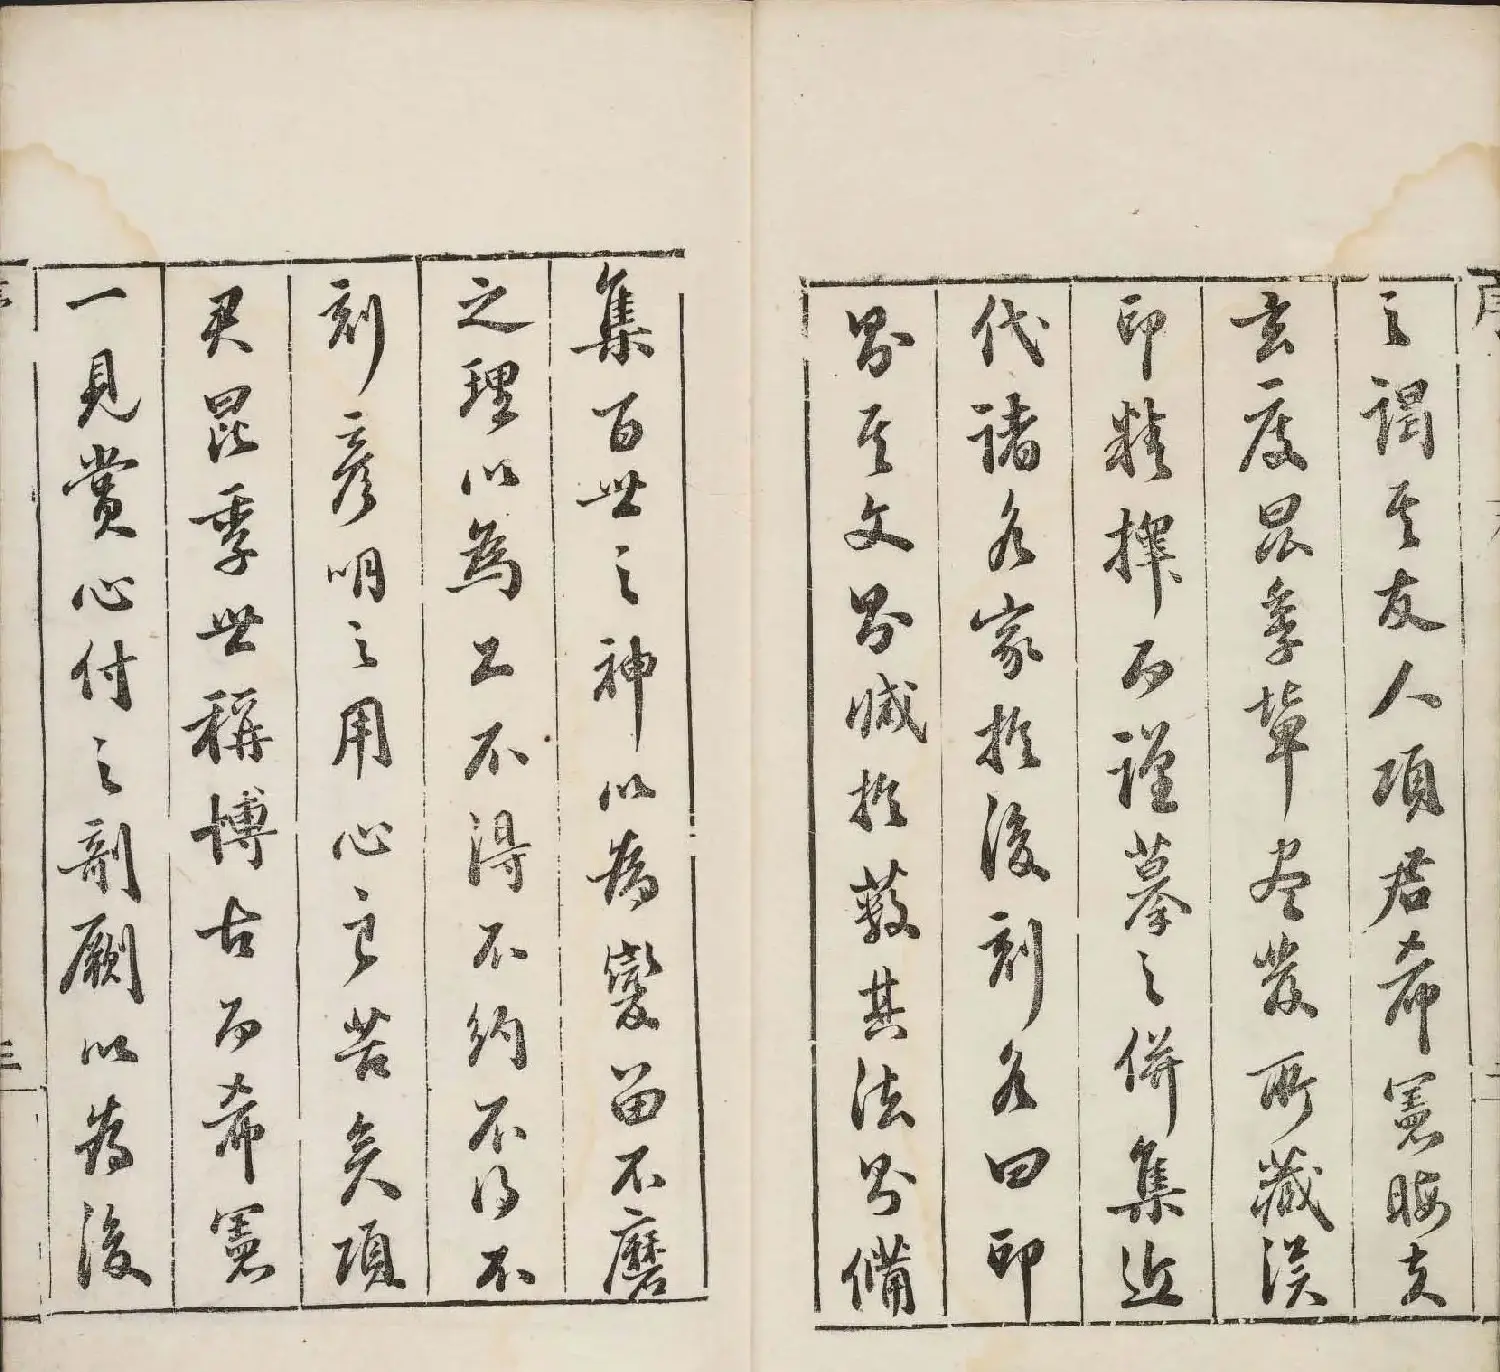 之謂其友人項君希憲晦夫
玄度昆季輩盡發所藏漢
印精擇而謹摹之併集近
代諸名家於後刻名曰印
則其文則臧於藪其法則備
集百世之神以為變留不磨
之理以為工不得不約不得不
刻彥明之用心良苦矣項
君昆季世稱博古而希憲
一見賞心付之剞劂以為後
序
三